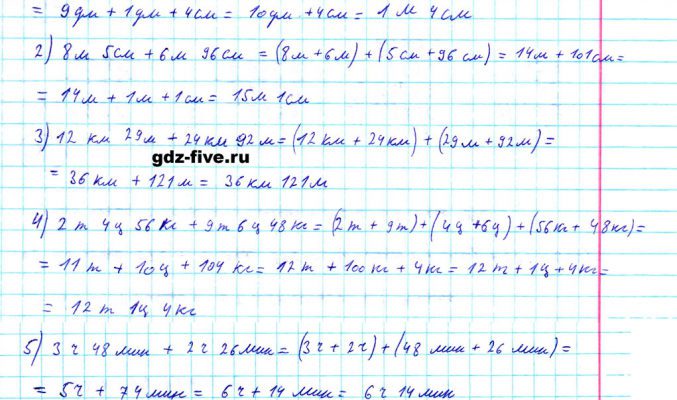 = 9дм + 1дм + 4см = 10дм + 4см = 1 м 4см
2) 8м 5см + 6м 96см = (8м + 6м) + (5см + 96см) = 14м + 101см =
= 14м + 1м + 1см = 15м 1см
3) 12 км 29м + 24км 92м = (12км + 24км) + (29м + 92м) =
gdz-five.ru
= 36км + 121м = 36км 121м
4) 2т 4ц 56кг + 9т 6ц 48кг = (2т + 9т) + (4ц + 6ц) + (56кг + 48кг) =
= 11т + 10ц + 104кг = 12т + 100кг + 4кг = 12т + 1ц + 4кг =
= 12т 1ц 4кг
5) 3ч 48мин + 2ч 26мин = (3ч + 2ч) + (48мин + 26мин) =
= 5ч + 74мин = 6ч + 14мин = 6ч 14мин